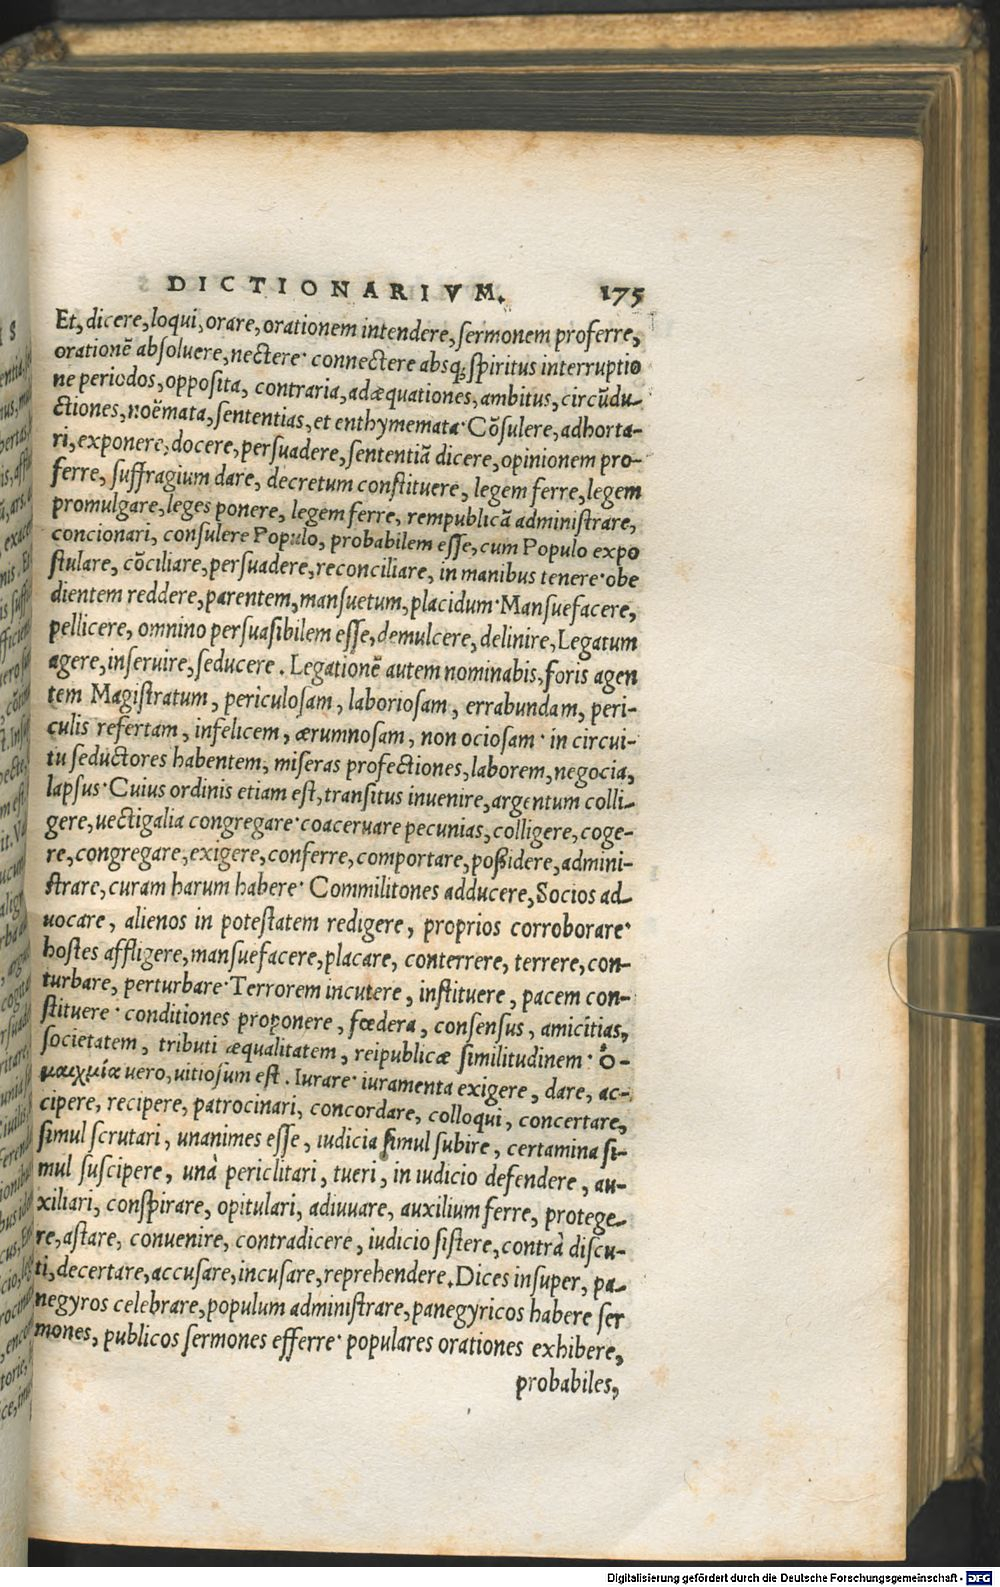 DICTIONARIVM. 175
Et, dicere, loqui, orare, orationem intendere, sermonem proferre,
orationē absoluere, nectere· connectere absq; spiritus interruptio
ne periodos, opposita, contraria, adæquationes, ambitus, circūdu-
ctiones, noëmata, sententias, et enthymemata· Cōsulere, adhorta-
ri, exponere, docere, persuadere, sententiā dicere, opinionem pro-
ferre, suffragium dare, decretum constituere, legem ferre, legem
promulgare, leges ponere, legem ferre, rempublicā administrare,
concionari, consulere Populo, probabilem esse, cum Populo expo
stulare, cōciliare, persuadere, reconciliare, in manibus tenere· obe
dientem reddere, parentem, mansuetum, placidum· Mansuefacere,
pellicere, omnino persuasibilem esse, demulcere, delinire, Legatum
agere, inseruire, seducere. Legationē autem nominabis, foris agen
tem Magistratum, periculosam, laboriosam, errabundam, peri-
culis refertam, infelicem, ærumnosam, non ociosam· in circui-
tu seductores habentem, miseras profectiones, laborem, negocia,
lapsus· Cuius ordinis etiam est, transitus inuenire, argentum colli-
gere, uectigalia congregare· coaceruare pecunias, colligere, coge-
re, congregare, exigere, conferre, comportare, poßidere, admini-
strare, curam harum habere· Commilitones adducere, Socios ad-
uocare, alienos in potestatem redigere, proprios corroborare·
hostes affligere, mansuefacere, placare, conterrere, terrere, con-
turbare, perturbare· Terrorem incutere, instituere, pacem con-
stituere· conditiones proponere, fœdera, consensus, amicitias,
societatem, tributi æqualitatem, reipublicæ similitudinem· ὁ-
μαιχμία uero, uitiosum est. Iurare· iuramenta exigere, dare, ac-
cipere, recipere, patrocinari, concordare, colloqui, concertare,
simul scrutari, unanimes esse, iudicia simul subire, certamina si-
mul suscipere, unà periclitari, tueri, in iudicio defendere, au-
xiliari, conspirare, opitulari, adiuuare, auxilium ferre, protege-
re, astare, conuenire, contradicere, iudicio sistere, contrà discu-
ti, decertare, accusare, incusare, reprehendere. Dices insuper, pa-
negyros celebrare, populum administrare, panegyricos habere ser
mones, publicos sermones efferre· populares orationes exhibere,
probabiles,
Digitalisierung gefördert durch die Deutsche Forschungsgemeinschaft - DFG